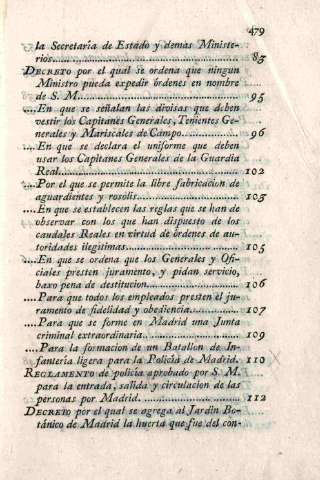 479
la Secretaría de Estado y demás Ministe-
rios........ 83
DECRETO por el qual se ordena que ningun
Ministro pueda expedir órdenes en nombre
de S. M........ 95
....En que se señalan las divisas que deben
vestir los Capitanes Generales, Tenientes Ge-
nerales y Mariscales de Campo........ 96
....En que se declara el uniforme que deben
usar los Capitanes Generales de la Guardia
Real........ 102
....Por el que se permite la libre fabricacion de
aguardientes y rosolis........ 103
....En que se establecen las reglas que se han de
observar con los que han dispuesto de los
caudales Reales en virtud de órdenes de au-
toridades ilegítimas........ 105
....En que se ordena que los Generales y Ofi-
ciales presten juramento, y pidan servicio,
baxo pena de destitucion........ 106
....Para que todos los empleados presten el ju-
ramento de fidelidad y obediencia........ 107
....Para que se forme en Madrid una Junta
criminal extraordinaria........ 109
....Para la formacion de un Batallon de In-
fantería ligera para la Policía de Madrid. 110
REGLAMENTO de policía aprobado por S. M.
para la entrada, salida y circulacion de las
personas por Madrid........ 112
DECRETO por el qual se agrega al Jardin Bo-
tánico de Madrid la huerta que fue del con-